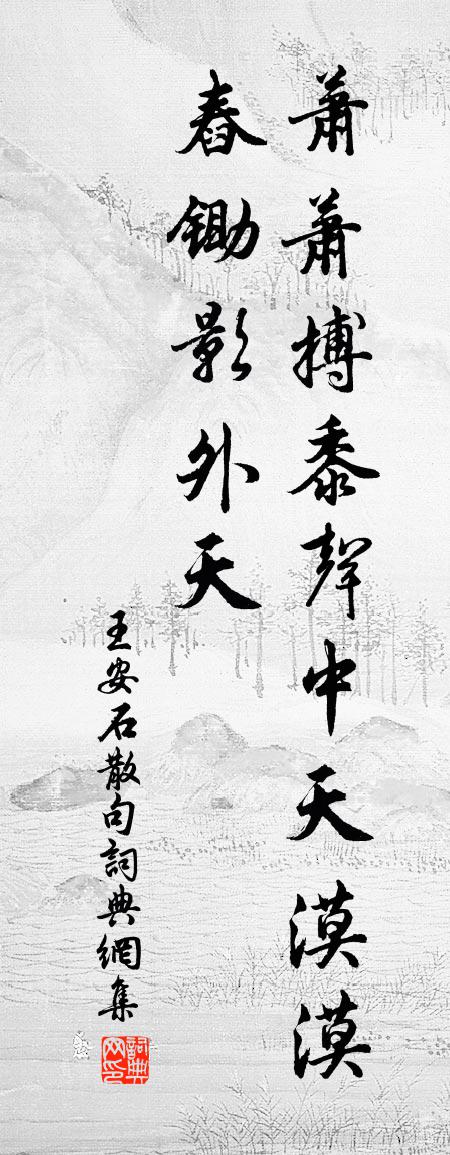 蕭蕭搏黍聲中天漠漠
舂鋤影外天
王安石散句詞典網集
詞典网印